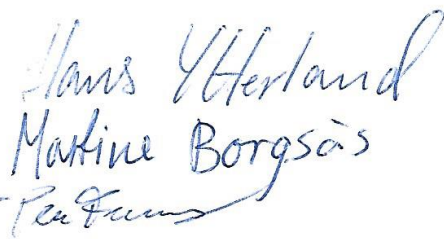 Hans Ytterland
Martine Borgsås
Per